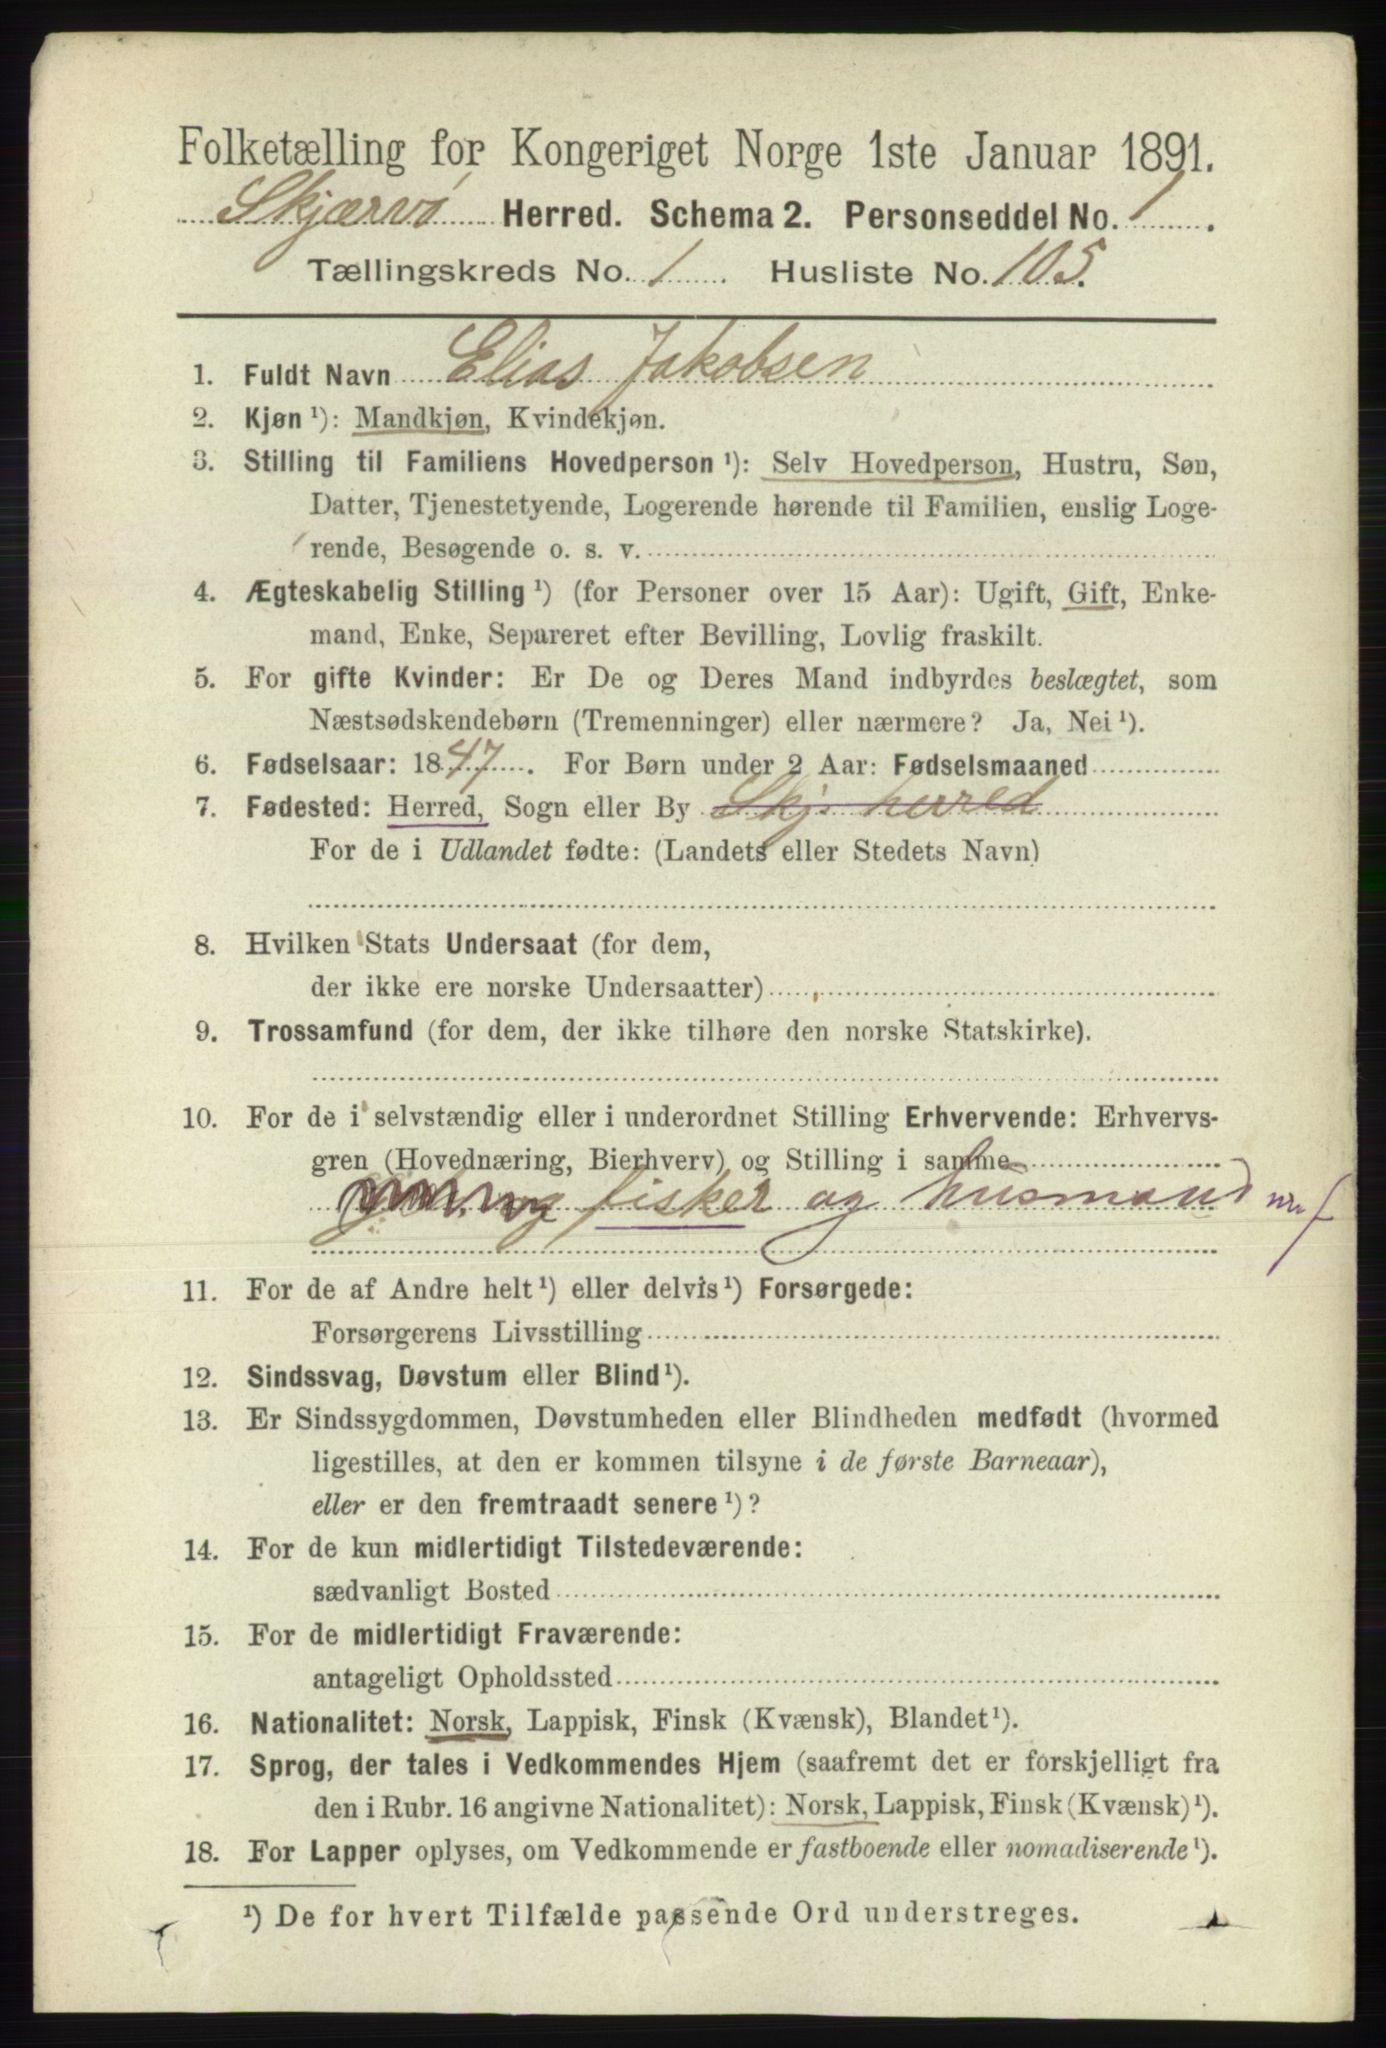 Folketælling for Kongeriget Norge 1ste Januar 1891.
Skjærvø Herred. Schema 2. Personseddel No. 1.
Tællingskreds No. 1 Husliste No. 105.
1. Fuldt Navn Elias Jakobsen
2. Kjøn ¹): Mandkjøn, Kvindekjøn.
3. Stilling til Familiens Hovedperson ¹): Selv Hovedperson, Hustru, Søn,
Datter, Tjenestetyende, Logerende hørende til Familien, enslig Loge-
rende, Besøgende o. s. v.
4. Ægteskabelig Stilling ¹) (for Personer over 15 Aar): Ugift, Gift, Enke-
mand, Enke, Separeret efter Bevilling, Lovlig fraskilt.
5. For gifte Kvinder: Er De og Deres Mand indbyrdes beslægtet, som
Næstsødskendebørn (Tremenninger) eller nærmere? Ja, Nei ¹).
6. Fødselsaar: 1847. For Børn under 2 Aar: Fødselsmaaned
7. Fødested: Herred, Sogn eller By Skj. herred
For de i Udlandet fødte: (Landets eller Stedets Navn)
8. Hvilken Stats Undersaat (for dem,
der ikke ere norske Undersaatter)
9. Trossamfund (for dem, der ikke tilhøre den norske Statskirke).
10. For de i selvstændig eller i underordnet Stilling Erhvervende: Erhvervs-
gren (Hovednæring, Bierhverv) og Stilling i samme
fisker og husmand
11. For de af Andre helt ¹) eller delvis ¹) Forsørgede:
Forsørgerens Livsstilling
12. Sindssvag, Døvstum eller Blind ¹).
13. Er Sindssygdommen, Døvstumheden eller Blindheden medfødt (hvormed
ligestilles, at den er kommen tilsyne i de første Barneaar),
eller er den fremtraadt senere ¹)?
14. For de kun midlertidigt Tilstedeværende:
sædvanligt Bosted
15. For de midlertidigt Fraværende:
antageligt Opholdssted
16. Nationalitet: Norsk, Lappisk, Finsk (Kvænsk), Blandet ¹).
17. Sprog, der tales i Vedkommendes Hjem (saafremt det er forskjelligt fra
den i Rubr. 16 angivne Nationalitet): Norsk, Lappisk, Finsk (Kvænsk) ¹).
18. For Lapper oplyses, om Vedkommende er fastboende eller nomadiserende ¹).
¹) De for hvert Tilfælde passende Ord understreges.